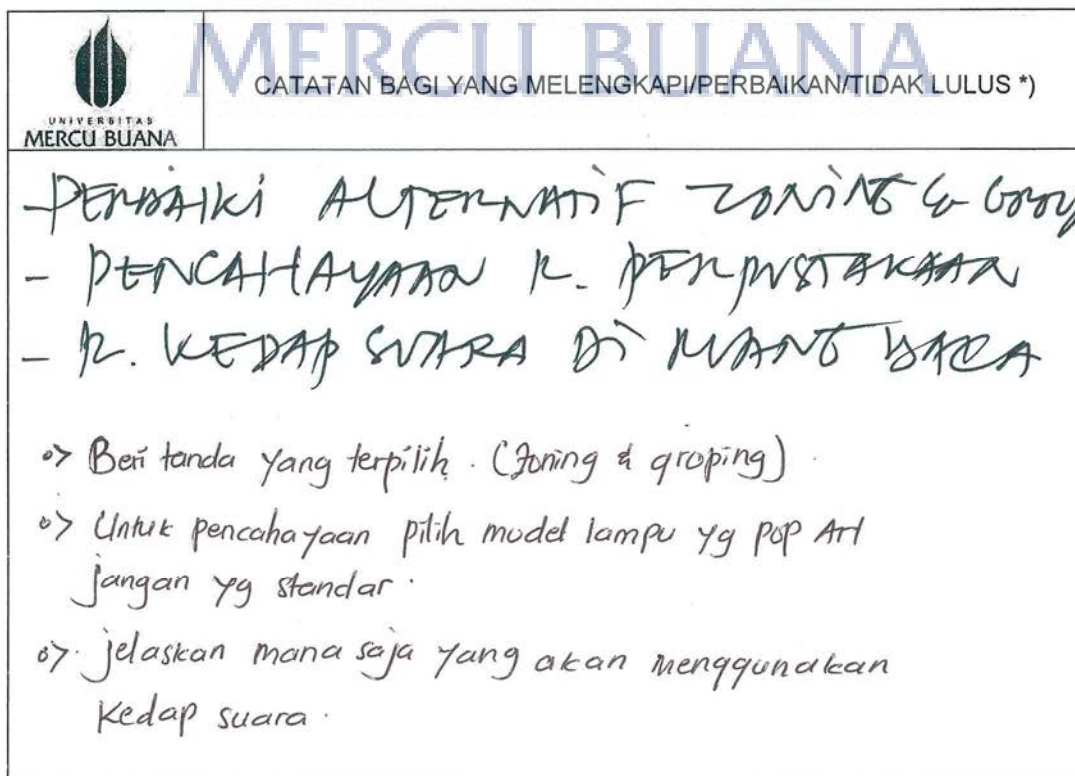 MERCU BUANA
UNIVERSITAS
MERCU BUANA
CATATAN BAGI YANG MELENGKAPI/PERBAIKAN/TIDAK LULUS *)
- PERBAIKI ALTERNATIF ZONING &
- PENCAHAYAAN R. PERPUSTAKAAN
- R. KEDAP SUARA DI RUANG BACA
Beri tanda yang terpilih. (Zoning & groping).
Untuk pencahayaan pilih model lampu yg pop Art
jangan yg standar.
jelaskan mana saja yang akan menggunakan
kedap suara.